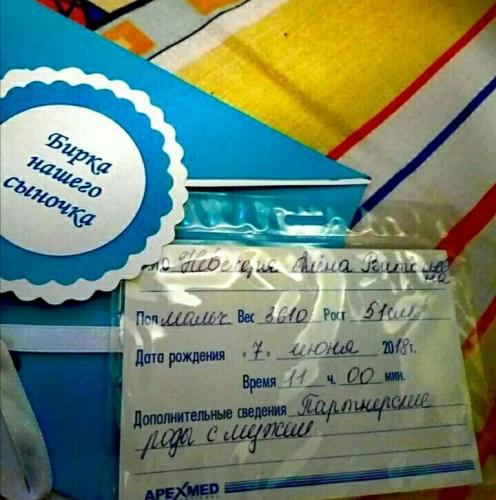 Бирка
нашего
сыночка
Алёна
Пол мальч Вес 3610 Рост 51см
Дата рождения «7» июня 2018г.
Время 11 ч. 00 мин.
Дополнительные сведения Партнерские
роды с мужем
APEXMED